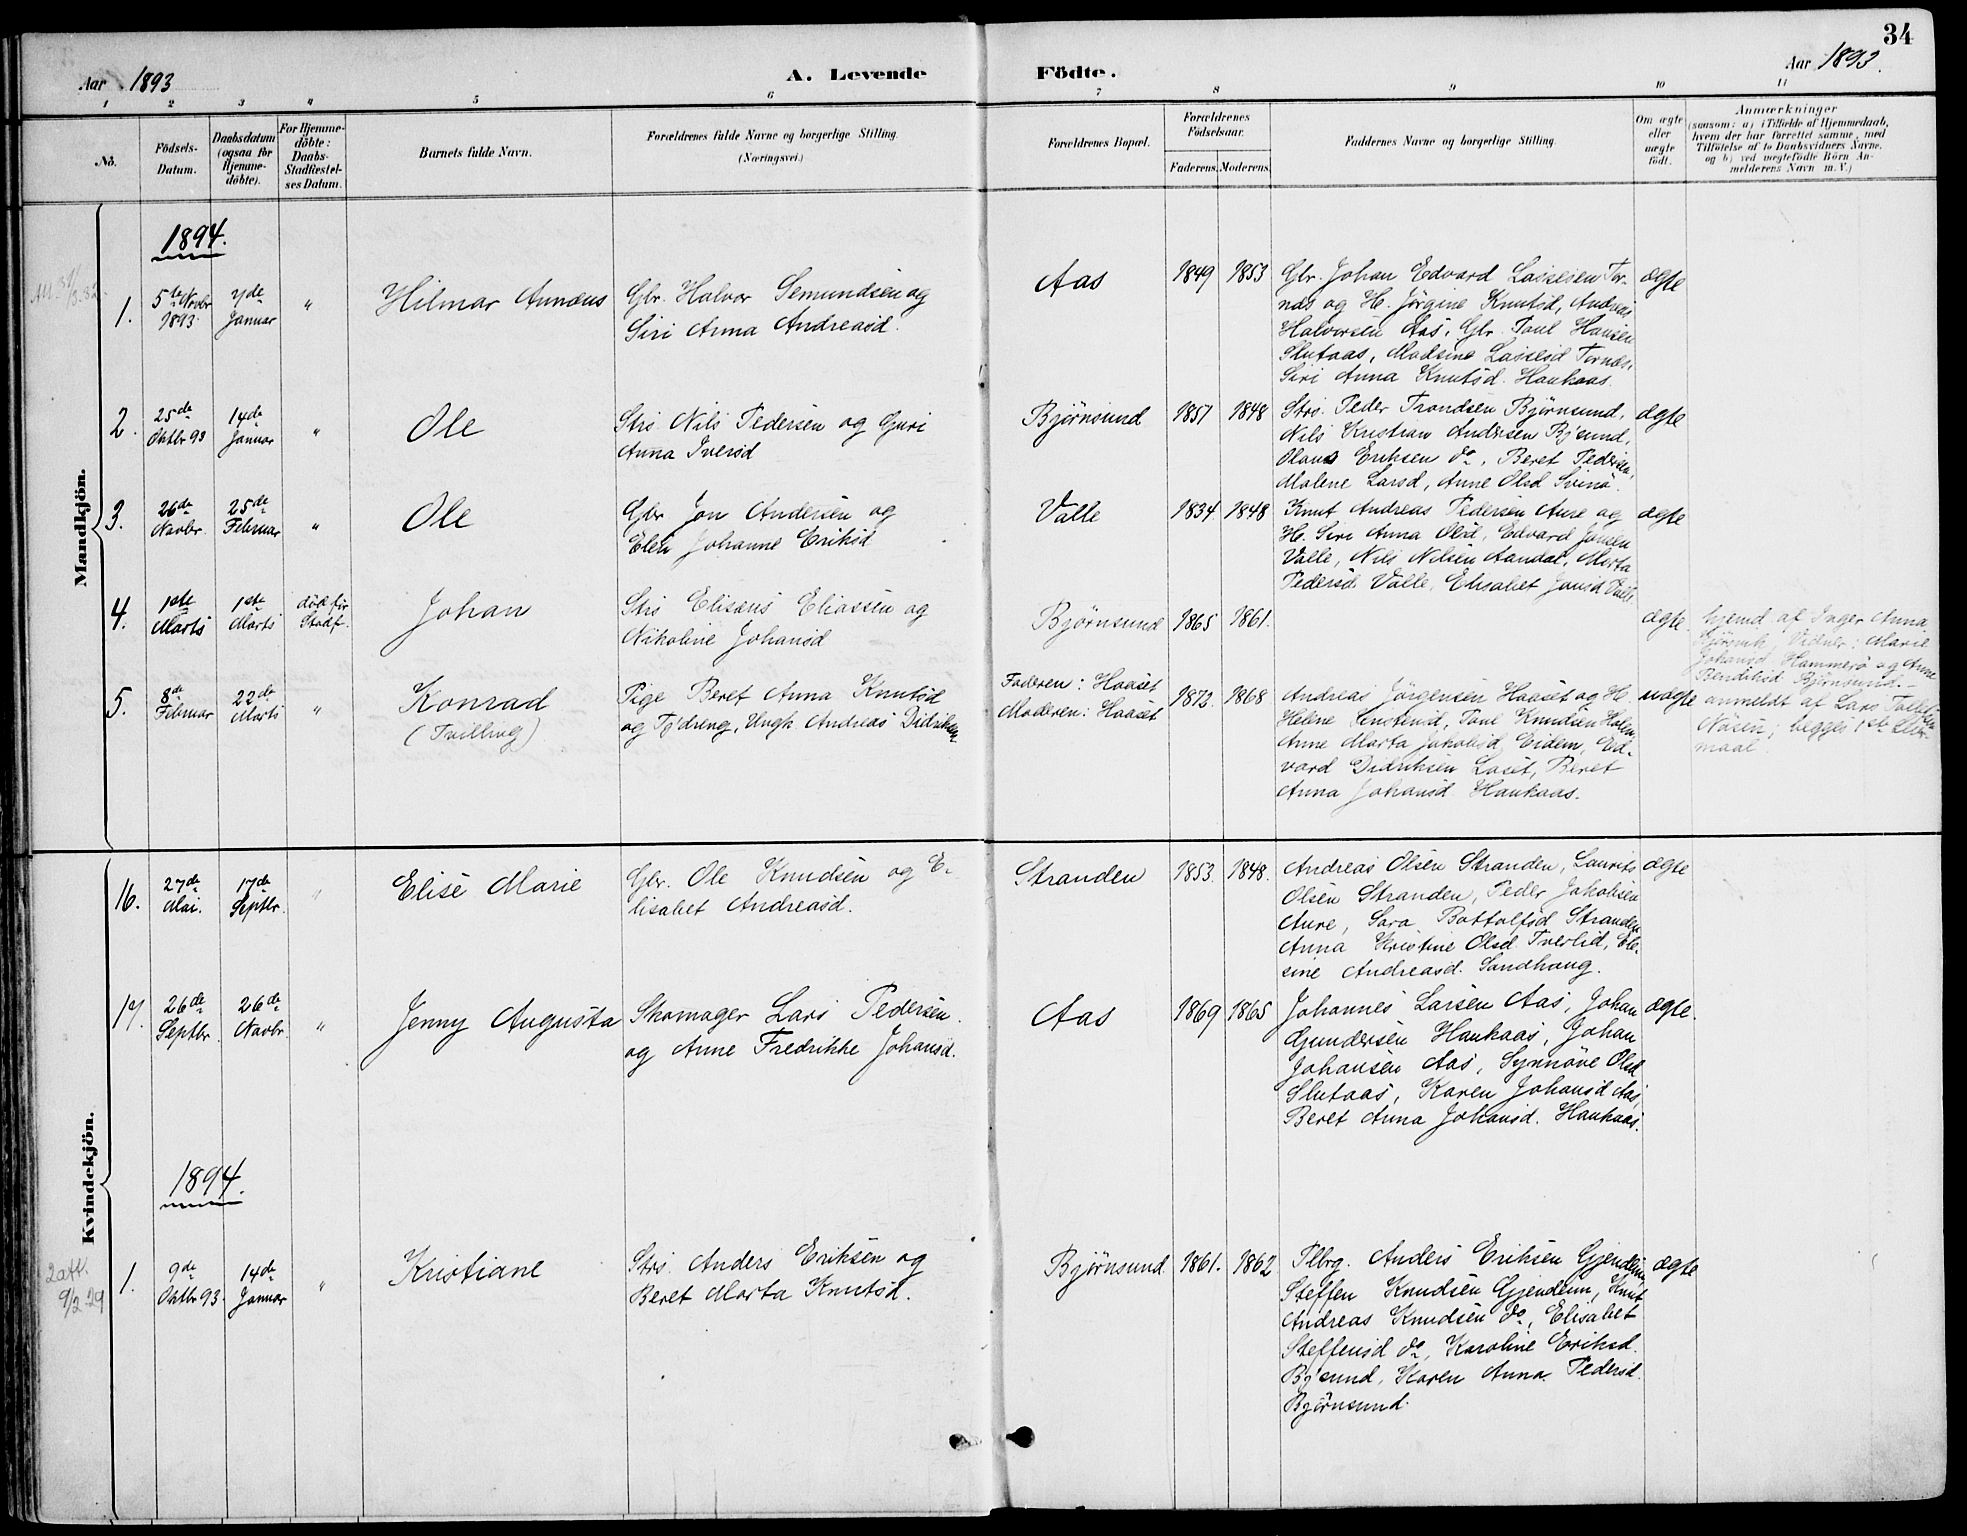 34
Aar 1893
A. Levende
Födte.
Aar 1893.
1 2 3 4 5 6 7 8 9 10 11
No.
Födsels-
Datum.
Daabsdatum
(ogsaa for
Hjemme-
döbte).
For Hjemme-
döbte:
Daabs-
Stadfæstel-
ses Datum.
Barnets fulde Navn.
Forældrenes fulde Navne og borgerlige Stilling.
(Næringsvei.)
Forældrenes Bopæl.
Forældrenes
Födselsaar.
Faderens.
Moderens.
Faddernes Navne og borgerlige Stilling.
Om ægte
eller
uægte
födt.
Anmærkninger
(saasom: a) i Tilfælde af Hjemmedaab,
hvem der har forrettet samme, med
Tilföielse af to Daabsvidners Navne,
og b) ved uægtefödte Börn An-
melderens Navn m. V.)
Mandkjön.
1894.
1.
5te Novbr
1893.
7de
Januar
"
Hilmar Annæus
Gbr. Halvor Semundsen og
Siri Anna Andreasd.
Aas
1849
1853
Gbr. Johan Edvard Lassesen Tor-
næs og H. Jörgine Knutsd, Andreas
Halvorsen Aas, Gbr. Poul Hansen
Slutaas, Madsine Lassesd Tornæs,
Siri Anna Knutsd. Haukaas.
ægte
2.
25de
Oktbr 93
14de
Januar
"
Ole
Strs. Nils Pedersen og Guri
Anna Iversd
Björnsund
1857
1848
Strs. Peder Trondsen Björnsund,
Nils Kristian Andersen Bj'sund,
Olaus Eriksen do, Beret Pedersen,
Malene Larsd, Anne Olsd Svinö.
ægte
3.
26de
Novbr.
25de
Februar
"
Ole
Gbr Jon Andersen og
Elen Johanne Eriksd
Valle
1834
1848
Knut Andreas Pedersen Aure og
H. Siri Anna Olsd, Edvard Jonsen
Valle, Nils Nilsen Aandal, Marta
Pedersd. Valle, Elisabet Jonsd Valle
ægte
4.
1ste
Marts
1ste
Marts
död för
Stadf.
Johan
Strs Elisæus Eliassen og
Nikoline Johansd
Björnsund
1865
1861.
ægte.
hjemd. af Inger Anna
Marie
Johansd Hammerö og Anne
Bendiksd Björnsund.
5.
8de
Februar
22de
Marts
"
Konrad
(Tvilling)
Pige Beret Anna Knutsd
og Tj.dreng, Ungk. Andreas Didriksen
Faderen: Haaset
Moderen: Haaset
1872.
1868
Andreas Jörgensen Haaset og H.
Helene Poul Knudsen Holm,
Anne Marta Jakobsd. Eidem, Ed-
vard Didriksen Laset, Beret
Anna Johansd Haukaas.
uægte
anmeldt af Lars
begges 1ste Leier-
maal.
Kvindekjön.
16.
27de
Mai.
17de
Septbr.
"
Elise Marie
Gbr. Ole Knudsen og E-
lisabet Andreasd.
Stranden
1853.
1848.
Andreas Olsen Stranden, Laurits
Olsen Stranden, Peder Jakobsen
Aure, Sara Bottolfsd Stranden,
Anna Kristine Olsd Tverlid, El-
sine Andreasd. Sandhaug.
ægte
17.
26de
Septbr.
26de
Novbr.
"
Jenny Augusta
Skomager Lars Pedersen
og Anne Fredrikke Johansd.
Aas
1869
1865
Johannes Larsen Aas, Johan
Gundersen Haukaas, Johan
Johansen Aas, Synnöve Olsd
Slutaas, Karen Johansd Aas,
Beret Anna Johansd. Haukaas.
ægte.
1894.
2 att.
9/2 29
1.
9de
Oktbr 93.
14de
Januar
"
Kristiane
Strs. Anders Eriksen og
Beret Marta Knutsd.
Björnsund
1861.
1862
Plbrg. Anders Eriksen Gjendem,
Steffen Knudsen Gjendem, Knut
Andreas Knudsen do, Elisabet
Steffensd do, Karoline Eriksd.
Bj'sund, Karen Anna Pedersd.
Björnsund.
ægte